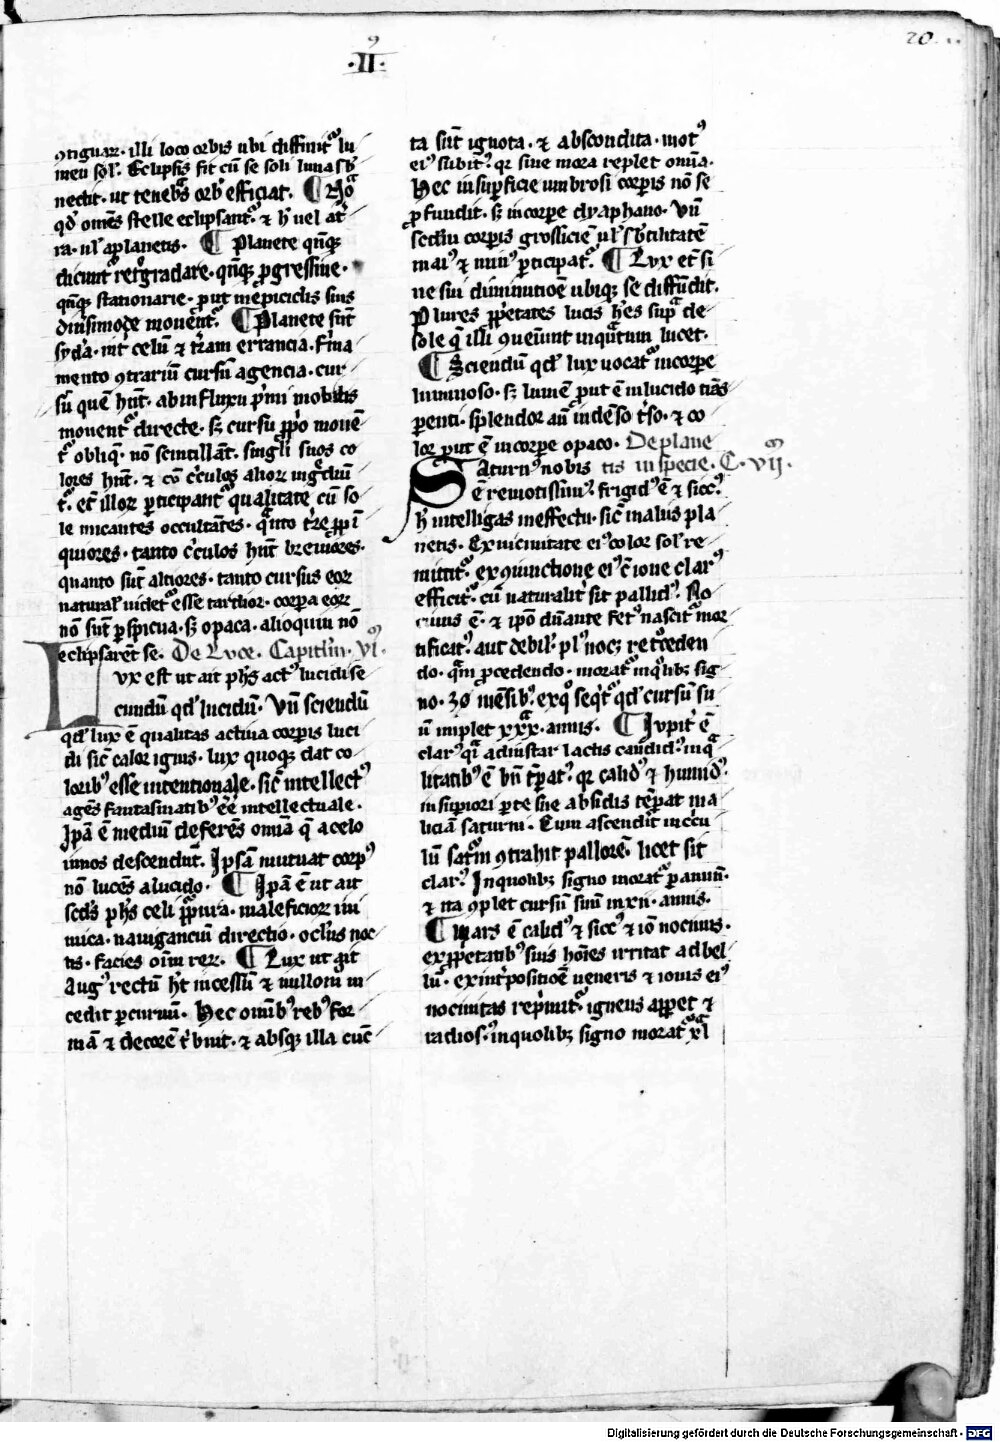 ·II·
20
ꝯtiguar· illi loco orbis ubi diffinit᷑ lu
men sol᷑· Eclipsis fit cū se soli luna sb᷑
nectit· ut tenebᵃs orb᷑ efficiat· ¶ Noᵃ
qd᷑ om̄s stelle eclipsant᷑· ⁊ h᷑ uel at᷑
ra· ul᷑ aplanetis· ¶ Planete qn̄qꝫ
dicunt᷑ ret᷑gradare· qn̄qꝫ ꝓgressiue·
qn̄qꝫ stationarie· ꝓut in epiciclis suis
diu᷑simode mouent᷑· ¶ Planete sūt
syd᷑a· int᷑ celū ⁊ t᷑ram errancia· firma
mento ꝯtrariū cursū agencia· cur
sū quē hn̄t· ab influxu p᷑mi mobilis
mouent᷑ directe· sꝫ cursu ꝓp᷑o mouē
t᷑ obliq̄· nō scintillāt· singl᷑i suos co
lores hn̄t· ⁊ cō c᷑culos alioꝝ ingᵃdiū
t᷑· et illoꝝ ꝑticipant᷑ qualitatē cū so
le micantes occultātes· qᵃnto t᷑re ꝓpī
quiores· tanto c᷑culos hn̄t breuiores·
quanto sūt altiores· tanto cursus eoꝝ
natural᷑ uidet᷑ esse tardior· corpora eoꝝ
nō sūt ꝑspicua· sꝫ opaca· alioquin nō
eclipsarēt se· De Luce· Capitl᷑m· vi·
Lvx est ut ait ph᷑s act᷑ lucidi se
cundū qd᷑ lucidū· Vn̄ sciendū
qd᷑ lux ē qualitas actiua corpis luci
di sic᷑ calor ignis· lux quoqꝫ dat co
lorib᷑ esse intentionale· sic᷑ intellect᷑
agēs fantasmatib᷑ eē intellectuale·
Ip̄a ē mediū deferēs om̄ia q̄ a celo
imos descendūt· Ipsam mutuat corp᷑
nō lucēs a lucido· ¶ Ip̄a ē ut ait
sed᷑s ph᷑s celi pᵃptura· maleficioꝝ ini
mica· nauiganciū directio· ocl᷑us noc
tis· facies oīm reꝝ· ¶ Lux ut ait
Aug᷑ rectum h᷑t incessū ⁊ nullom in
cedit ꝑ curuū· Hec omīb᷑ reb᷑ for
mā ⁊ decorē t᷑buit· ⁊ absqꝫ illa cūc
ta sūt ignota· ⁊ abscondita· mot᷑
ei᷑ subit᷑· qꝛ sine mora replet om̄ia·
Hec in suꝑficie umbrosi corꝑis nō se
ꝓfundit· sꝫ in corꝑe dyaphano· Vn̄
scd᷑m corꝑis grossiciē ul᷑ sb᷑tilitatē
mai᷑ ⁊ min᷑ ꝑticipat᷑· ¶ Lvx et᷑ si
ne sui diminutioē ubiqꝫ se diffūdit·
Plures ꝓp᷑etates lucis h᷑es supᵃ de
sole q̄ illi ꝯueniūt inqᵃntum lucet·
¶ Sciendū qd᷑ lux uocat᷑ in corpe
luminoso· sꝫ lumē ꝓut ē in lucido trās
parenti· splendor aūt in dēso t᷑so· ⁊ co
lor ꝓut ē in corpe opaco· De plane
Saturn᷑ nobis tis in specie· C· vij·
ē remotissim᷑· frigid᷑ ē ⁊ sicc᷑·
h᷑ intelligas in effectu· sic᷑ in aliis pla
netis· Ex uicinitate ei᷑ color sol᷑ re
mittit᷑· ex ꝯiunctione ei᷑ c᷑ ioue clar᷑
efficit᷑· cū naturalit᷑ sit pallid᷑· No
ciuus ē· ⁊ ip̄o dn̄ante fet᷑ nascit᷑ mor
tificat᷑· aut debil᷑· pl᷑ nocꝫ ret᷑ceden
do· qᵃm ꝓcedendo· morat᷑ in qᵃlibꝫ sig
no· 30 mēsib᷑· ex qᵒ seqit᷑ qd᷑ cursū su
ū implet xxx· annis· ¶ Ivpit᷑ ē
clar᷑ qᵃi ad instar lactis candid᷑ in qᵃ
litatib᷑ ē bn̄ t᷑ꝑat᷑· qꝛ calid᷑ ⁊ humid᷑·
in suꝑiori ꝑte sue absidis t᷑ꝑat ma
liciā saturni· Cum ascendit in c᷑cu
lū sat᷑ni ꝯtrahit pallorē· licet sit
clar᷑· In quolibꝫ signo morat᷑ ꝑ annū·
⁊ ita ꝯplet cursū suū in xii· annis·
¶ Mars ē calid᷑ ⁊ sicc᷑ ⁊ iō nociuus·
ex ꝓp᷑etatib᷑ suis hōies irritat ad bel
lū· ex int᷑positioē ueneris ⁊ iouis ei᷑
nociuitas rep᷑mit᷑· igneus apꝑet ⁊
radios᷑· in quolibꝫ signo morat᷑ xl
Digitalisierung gefördert durch die Deutsche Forschungsgemeinschaft · DFG